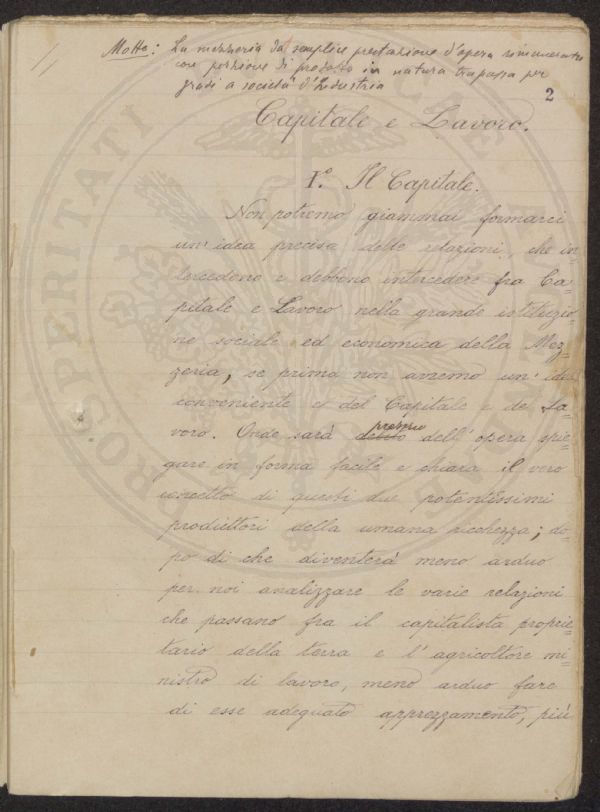 1/
Motto: La mezzeria da semplice prestazione d'opera rimunerata
con porzione di prodotto in natura trapassa per
gradi a società d'Industria
2
Capitale e Lavoro.
I.° Il Capitale.
Non potremo giammai formarci
un' idea precisa delle relazioni, che in=
tercedono e debbono intercedere fra Ca=
pitale e Lavoro nella grande istituzio=
ne sociale ed economica della Mez=
zeria, se prima non avremo un' idea
conveniente e del Capitale e de La=
voro. Onde sarà debito prezzo dell' opera spie=
gare in forma facile e chiara il vero
concetto di questi due potentissimi
produttori della umana ricchezza; do=
po di che diventerà meno arduo
per noi analizzare le varie relazioni
che passano fra il capitalista proprie=
tario della terra e l' agricoltore mi=
nistro di lavoro, meno arduo fare
di esse adeguato apprezzamento, più
PROSPERITATI